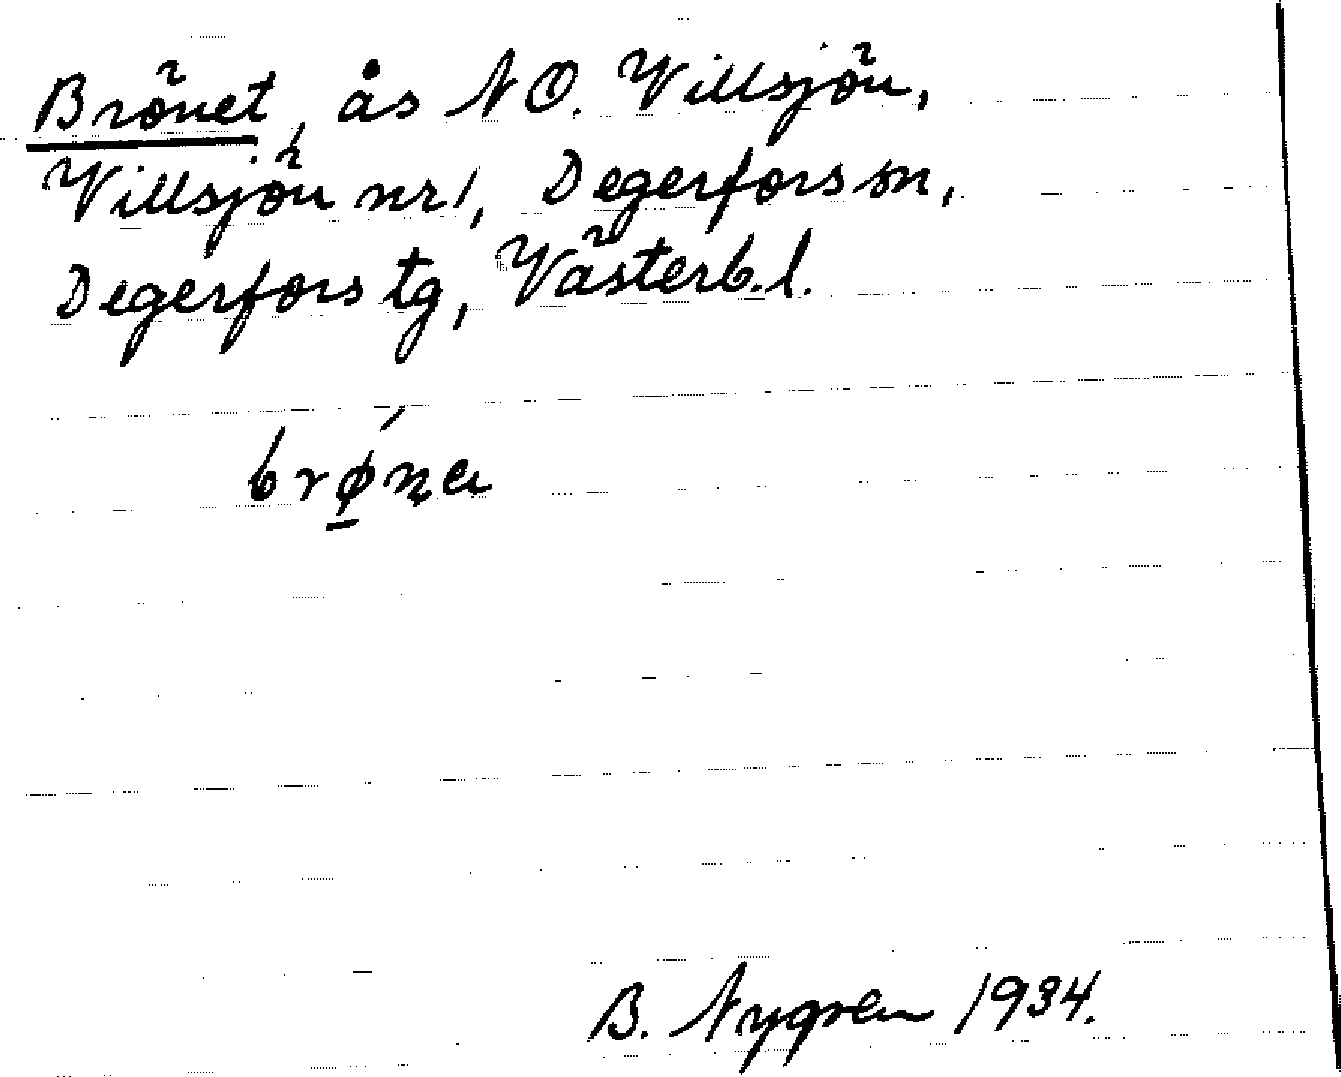 Brönet, ås NO. Villsjön,
Villsjön nr 1, Degerfors sn,
Degerfors tg, Västerb. l.
brǿ̲na
B. Nygren 1934.